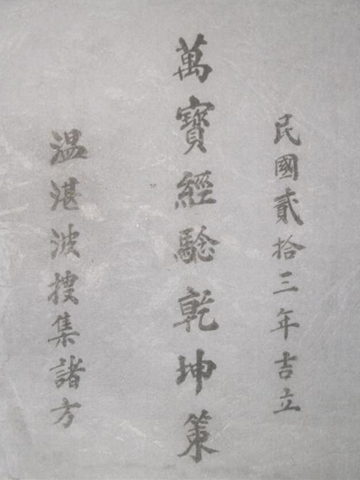 民國貳拾三年吉立
萬寶經騐乾坤策
温湛波搜集諸方